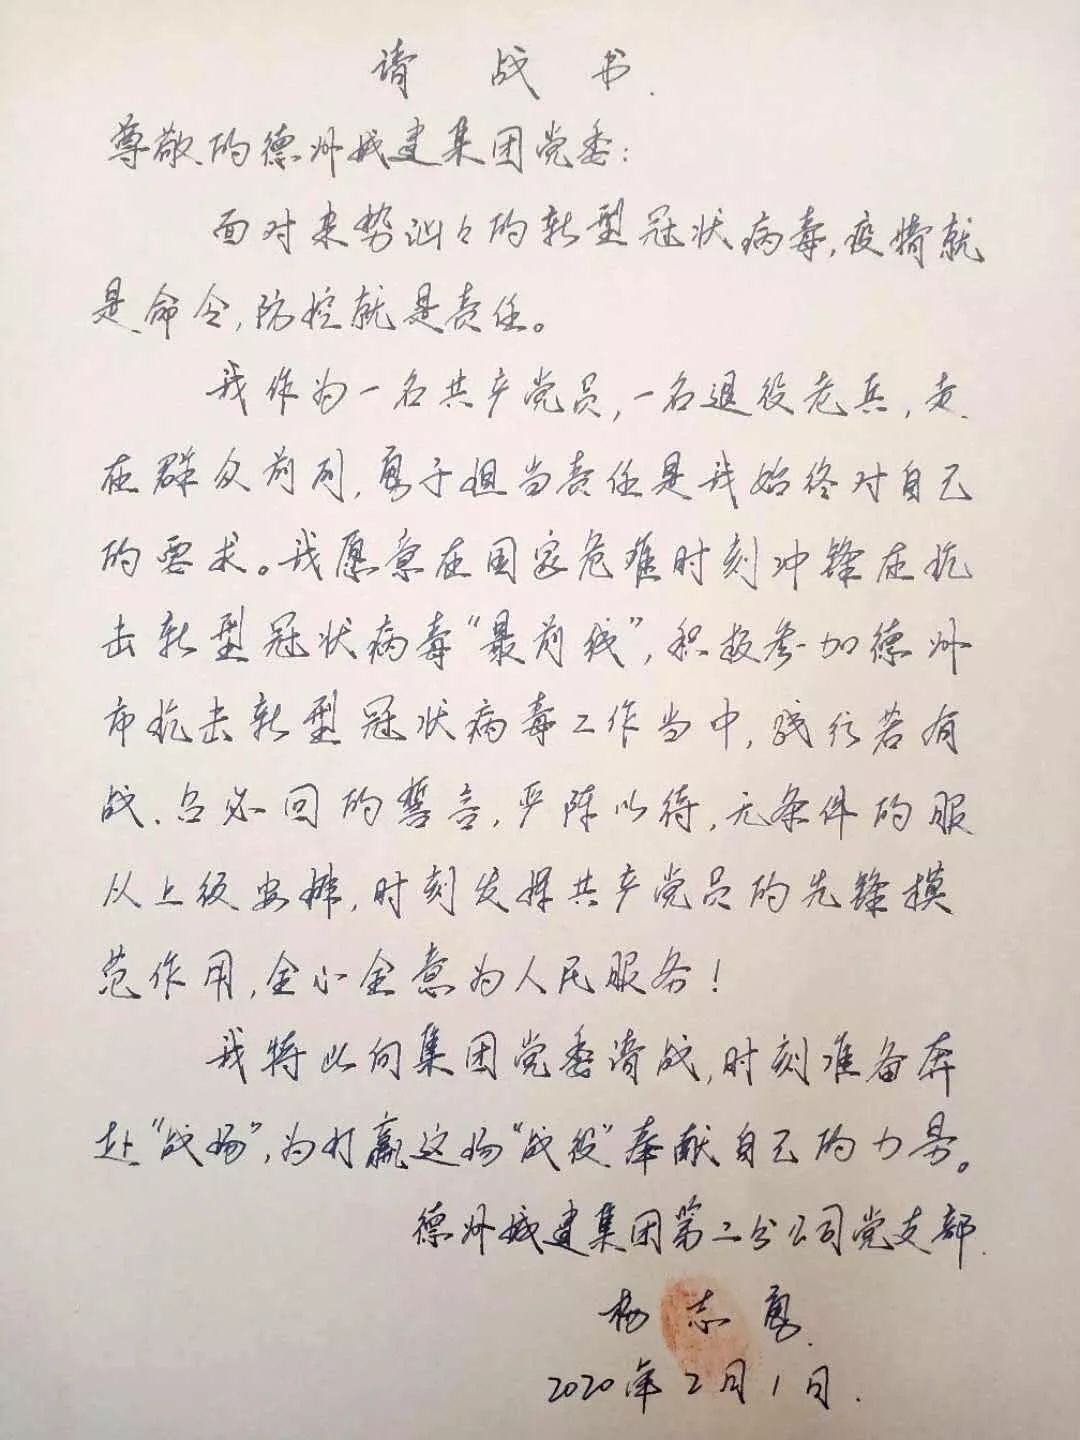 请战书
尊敬的德州城建集团党委：
面对来势汹々的新型冠状病毒，疫情就
是命令，防控就是责任。
我作为一名共产党员，一名退役老兵，走
在群众前列，勇于担当责任是我始终对自己
的要求。我愿意在国家危难时刻冲锋在抗
击新型冠状病毒“最前线”，积极参加德州
市抗击新型冠状病毒工作当中，践行若有
战、召必回的誓言，严阵以待，无条件的服
从上级安排，时刻发挥共产党员的先锋模
范作用，全心全意为人民服务！
我特此向集团党委请战，时刻准备奔
赴“战场”，为打赢这场“战役”奉献自己的力量。
德州城建集团第二分公司党支部
杨志勇
2020年2月1日.